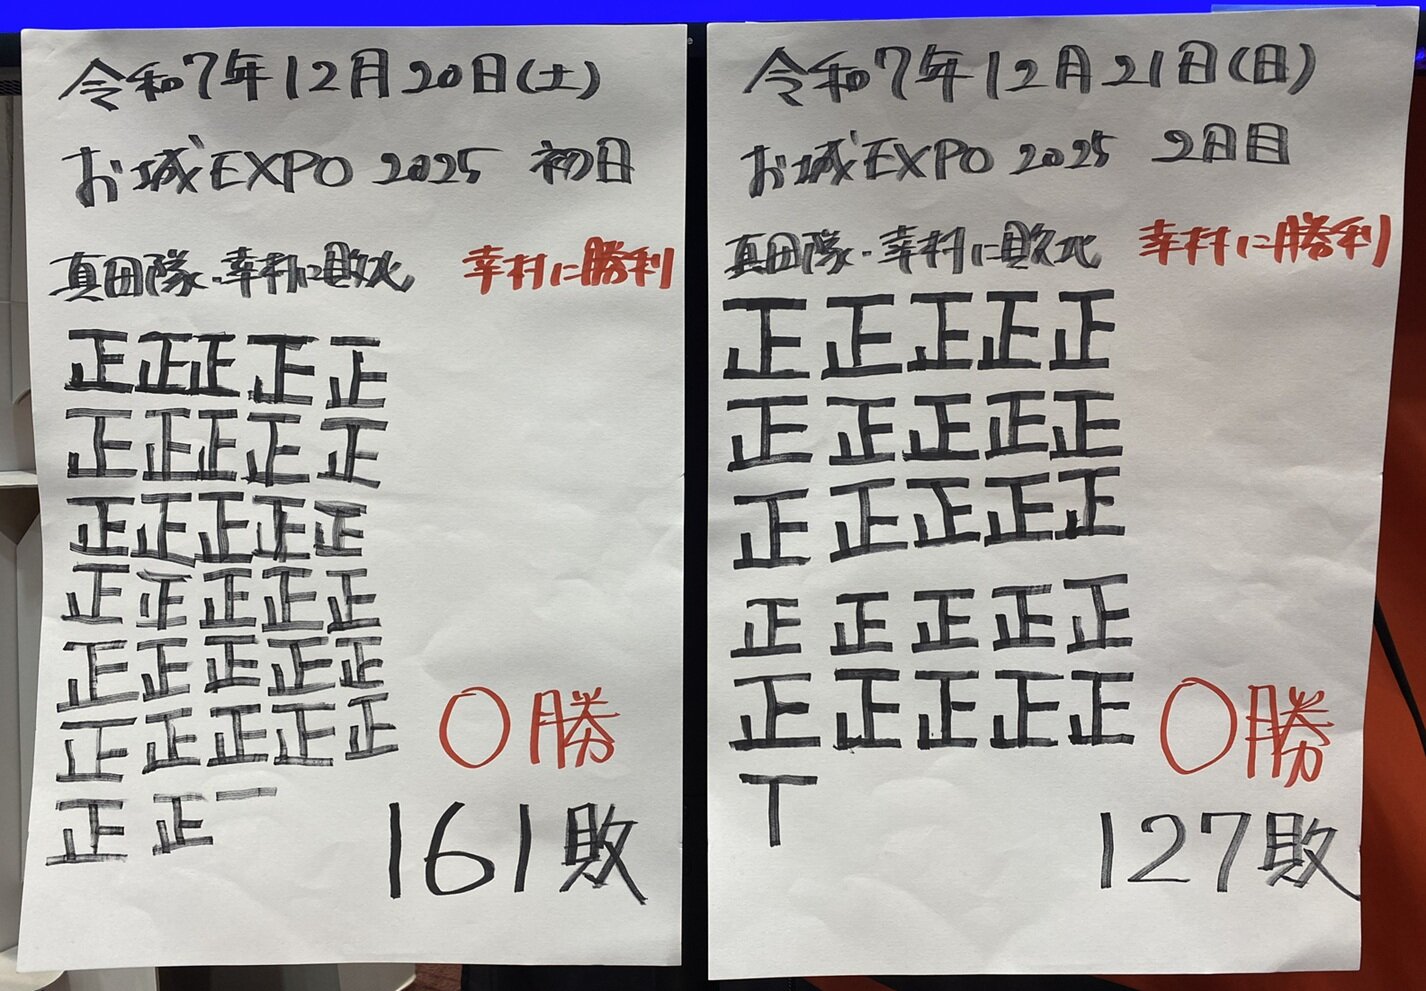 令和7年12月20日(土)
お城EXPO 2025 初日
真田隊・幸村に敗北 幸村に勝利
正正正正正
正正正正正
正正正正正
正正正正正
正正正正正
正正正正正
正正一
〇勝
161敗
令和7年12月21日(日)
お城EXPO 2025 2日目
真田隊・幸村に敗北 幸村に勝利
正正正正正
正正正正正
正正正正正
正正正正正
正正正正正
丅
〇勝
127敗